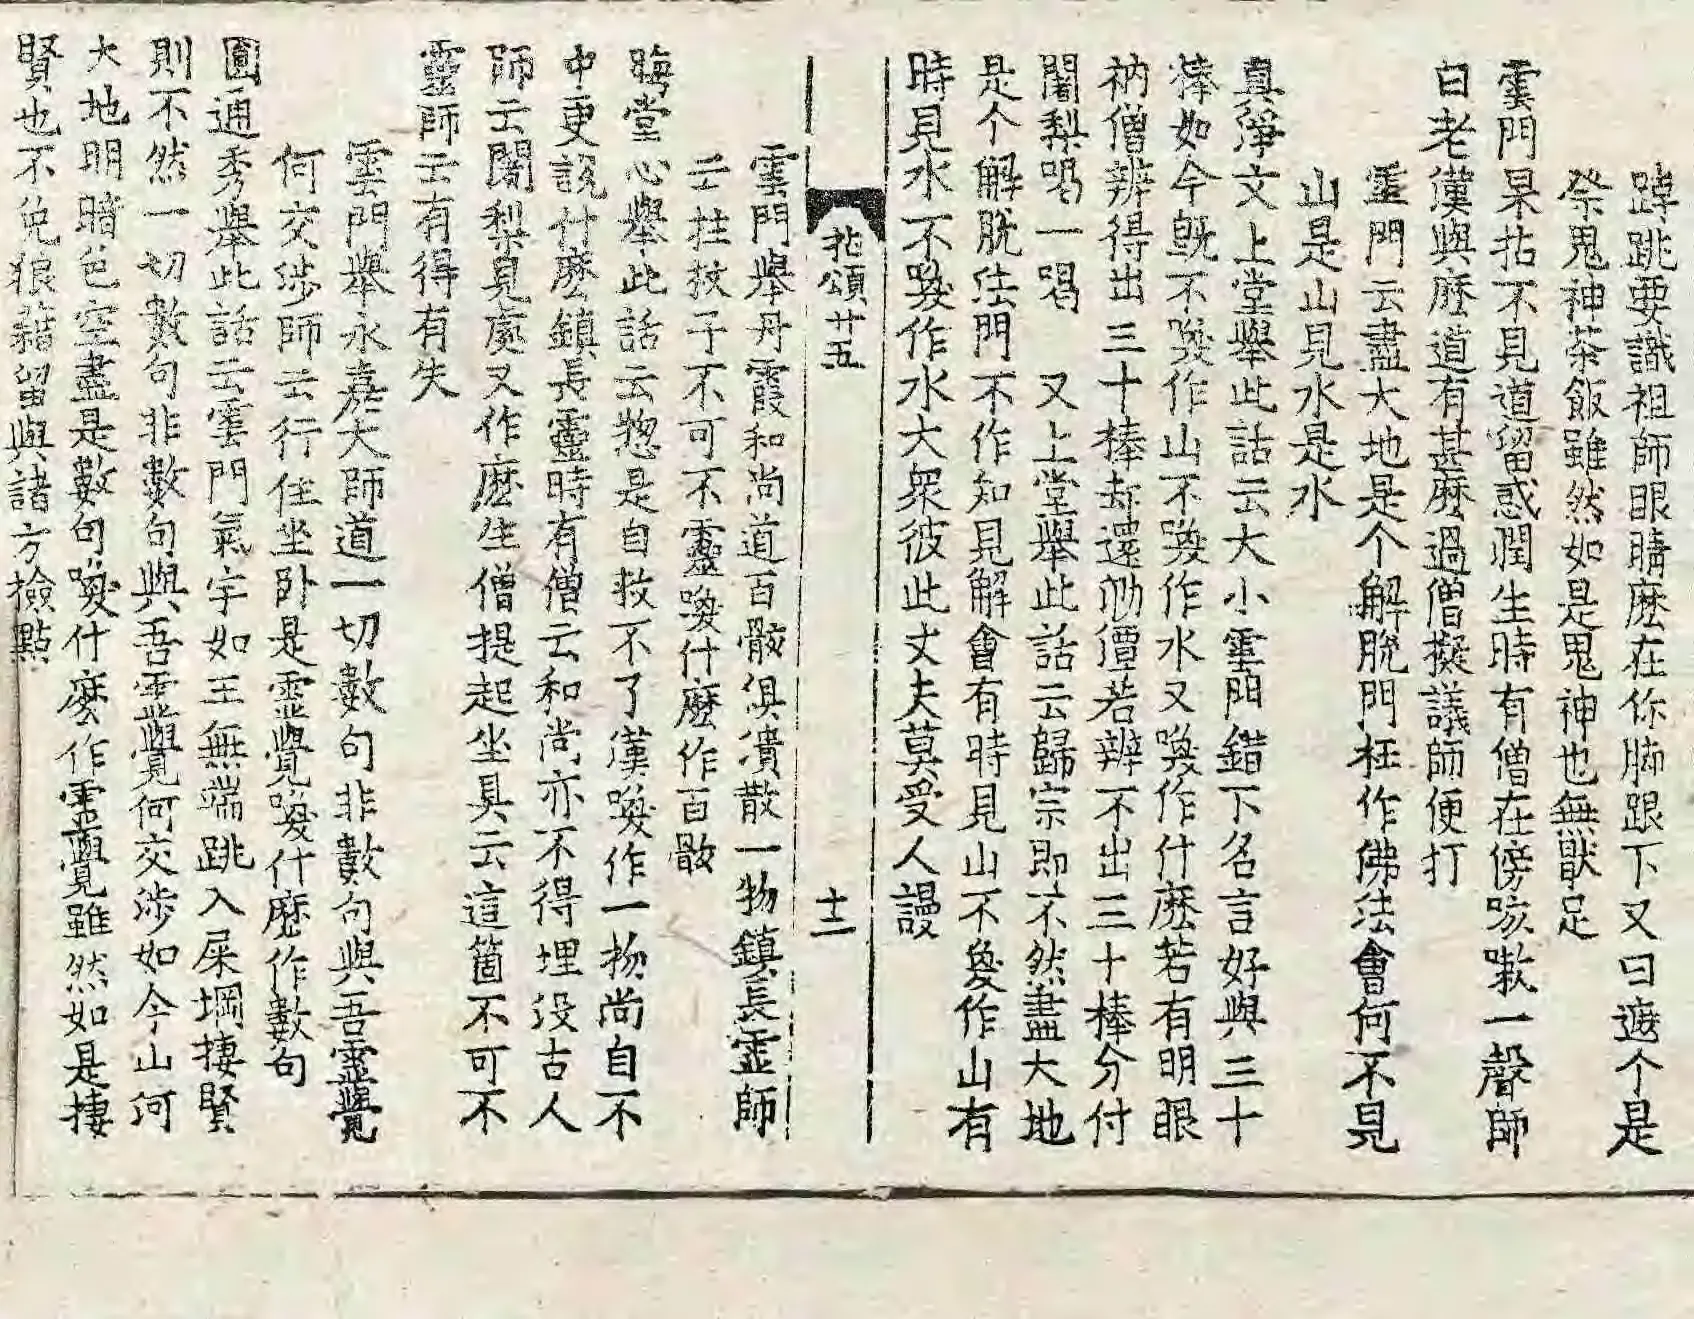 踔跳要識祖師眼睛麽在你脚跟下又曰遮个是
祭鬼神茶飯雖然如是鬼神也無猒足
雲門杲拈不見道留惑潤生時有僧在傍咳嗽一聲師
曰老漢與麽道有甚麽過僧擬議師便打
雲門云盡大地是个解脫門枉作佛法會何不見
山是山見水是水
真淨文上堂舉此話云大小雲門錯下名言好與三十
棒如今旣不喚作山不喚作水又喚作什麽若有明眼
衲僧辨得出三十棒却還泐潭若辨不出三十棒分付
闍梨喝一喝 又上堂舉此話云歸宗即不然盡大地
是个解脫法門不作知見解會有時見山不喚作山有
時見水不喚作水大衆彼此丈夫莫受人謾
拈頌廿五 十二
雲門舉丹霞和尚道百骸俱潰散一物鎮長霊師
云拄杖子不可不靈喚什麽作百骸
晦堂心舉此話云惣是自救不了漢喚作一物尚自不
中更説什麽鎮長靈時有僧云和尚亦不得埋没古人
師云闍梨見處又作麽生僧提起坐具云這箇不可不
靈師云有得有失
雲門舉永嘉大師道一切數句非數句與吾靈覺
何交涉師云行住坐卧是靈覺喚什麽作數句
圓通秀舉此話云雲門氣宇如王無端跳入屎堈捿賢
則不然一切數句非數句與吾靈覺何交涉如今山河
大地明暗色空盡是數句喚什麽作霊覺雖然如是捿
賢也不免狼藉留與諸方撿點